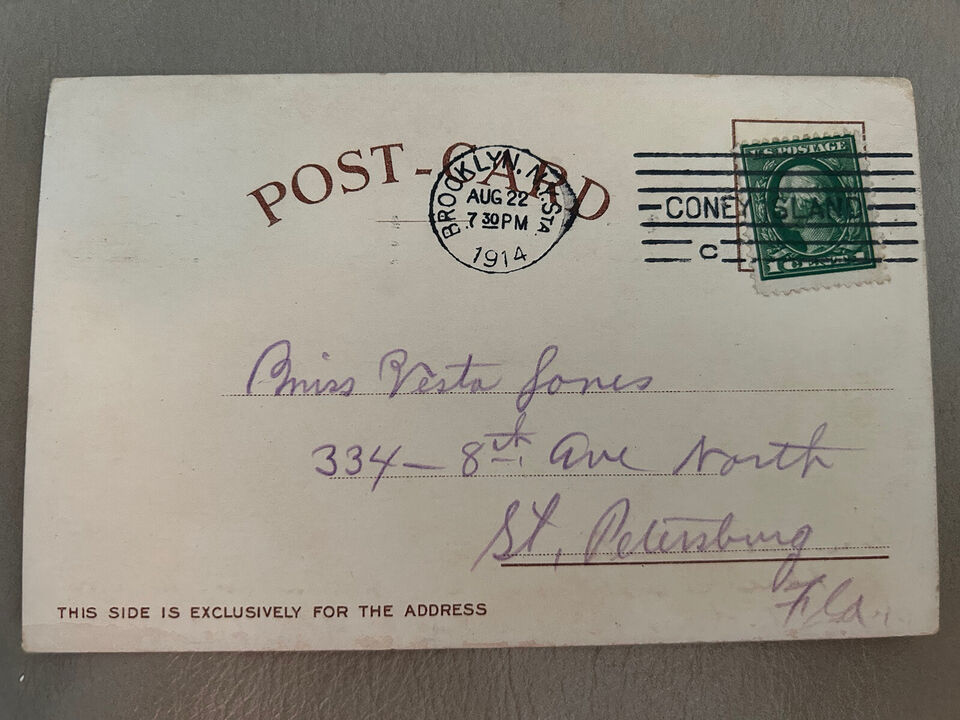 POST-CARD
BROOKLYN, N.Y. STA
AUG 22
7 30 PM
1914
CONEY ISLAND
C
U.S. POSTAGE
1 CENT 1
Miss Vesta Jones
334 - 8th Ave North
St. Petersburg
Fla.
THIS SIDE IS EXCLUSIVELY FOR THE ADDRESS